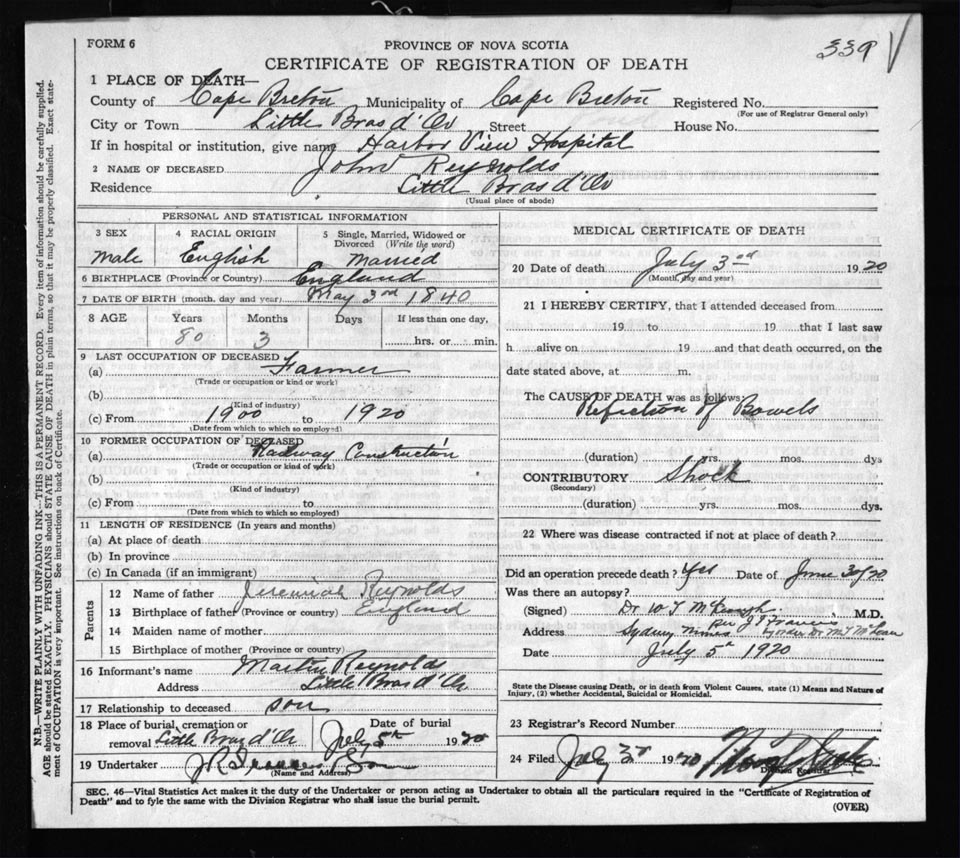 FORM 6
PROVINCE OF NOVA SCOTIA
339 V
CERTIFICATE OF REGISTRATION OF DEATH
1 PLACE OF DEATH—
County of Cape Breton Municipality of Cape Breton Registered No.
(For use of Registrar General only)
City or Town Little Bras d'Or Street House No.
If in hospital or institution, give name Harbor View Hospital
2 NAME OF DECEASED John Reynolds
Residence Little Bras d'Or
(Usual place of abode)
PERSONAL AND STATISTICAL INFORMATION
3 SEX 4 RACIAL ORIGIN 5 Single, Married, Widowed or Divorced (Write the word)
male English Married
6 BIRTHPLACE (Province or Country) England
7 DATE OF BIRTH (month, day and year) May 3rd 1840
8 AGE Years Months Days If less than one day,
80 3 hrs. or min.
9 LAST OCCUPATION OF DECEASED
(a) Farmer
(Trade or occupation or kind or work)
(b)
(Kind of industry)
(c) From 1900 to 1920
(Date from which to which so employed)
10 FORMER OCCUPATION OF DECEASED
(a) Railway Construction
(Trade or occupation or kind of work)
(b)
(Kind of industry)
(c) From to
(Date from which to which so employed)
11 LENGTH OF RESIDENCE (In years and months)
(a) At place of death
(b) In province
(c) In Canada (if an immigrant)
Parents
12 Name of father Jeremiah Reynolds
13 Birthplace of father (Province or country) England
14 Maiden name of mother
15 Birthplace of mother (Province or country)
16 Informant's name Martin Reynolds
Address Little Bras d'Or
17 Relationship to deceased son
18 Place of burial, cremation or Date of burial
removal Little Bras d'Or July 5th 1920
19 Undertaker
(Name and Address)
MEDICAL CERTIFICATE OF DEATH
20 Date of death July 3rd 1920
(Month, day and year)
21 I HEREBY CERTIFY, that I attended deceased from
19 to 19 that I last saw
h alive on 19 and that death occurred, on the
date stated above, at m.
The CAUSE OF DEATH was as follows:
of Bowels
(duration) yrs. mos. dys
CONTRIBUTORY Shock
(Secondary)
(duration) yrs. mos. dys.
22 Where was disease contracted if not at place of death?
Did an operation precede death? Yes Date of June 30/20
Was there an autopsy?
(Signed) Dr M.D.
Address Sydney Mines
Date July 5th 1920
State the Disease causing Death, or in death from Violent Causes, state (1) Means and Nature of
Injury, (2) whether Accidental, Suicidal or Homicidal.
23 Registrar's Record Number
24 Filed July 1920
Division Registrar
SEC. 46—Vital Statistics Act makes it the duty of the Undertaker or person acting as Undertaker to obtain all the particulars required in the "Certificate of Registration of
Death" and to fyle the same with the Division Registrar who shall issue the burial permit.
(OVER)
N.B.—WRITE PLAINLY WITH UNFADING INK—THIS IS A PERMANENT RECORD. Every item of information should be carefully supplied.
AGE should be stated EXACTLY. PHYSICIANS should STATE CAUSE OF DEATH in plain terms, so that it may be properly classified. Exact state-
ment of OCCUPATION is very important. See instructions on back of Certificate.